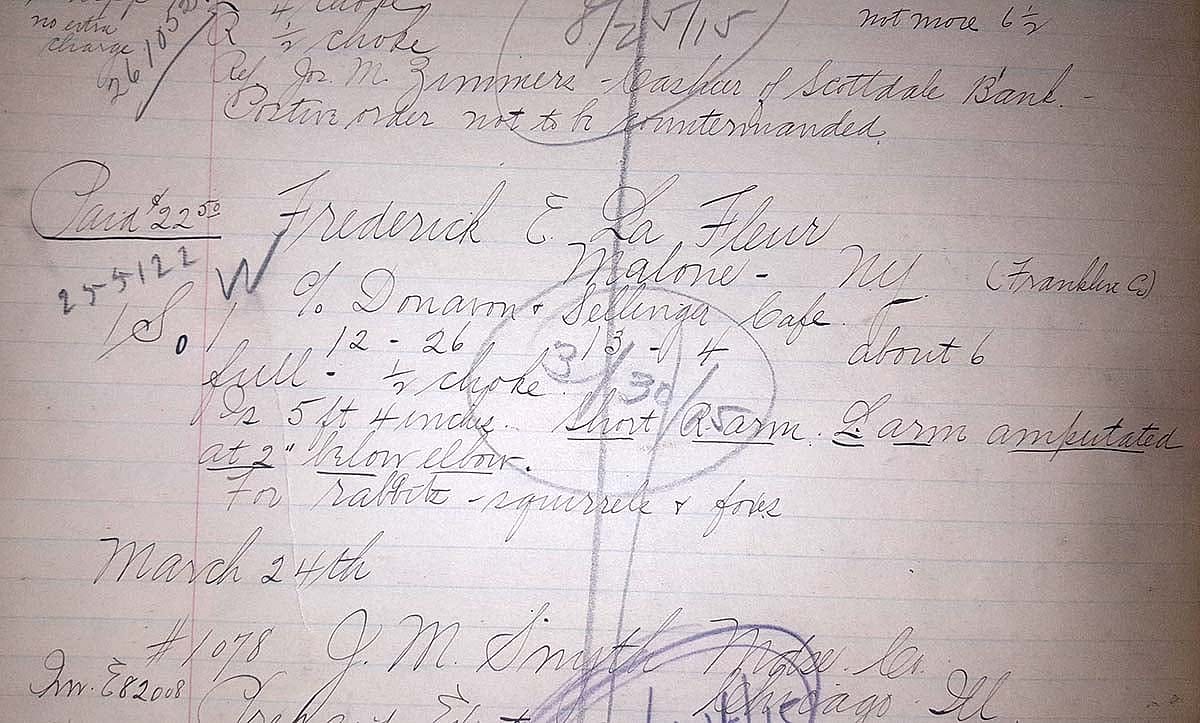 no extra
charge
26105
R ½ choke
8/25/15
not more 6½
Ref Jos. M. Zimmers - Cashier of Scottdale Bank. -
Postive order not to be countermanded.
Paid $22 50
Frederick E. La Fleur
Malone - NY. (Franklin Co)
255122
W
% Donavon & Sellinga Cafe.
1 S. 0 1
12 - 26 13 - 4 about 6
full - ½ choke
3/30/15
Is 5 ft 4 inches. Short R arm. L. arm amputated
at 2" below elbow.
For rabbits - squirrels & foxes
March 24th
#1078 J. M. Smyth Mdse. Co.
Inv. E82008
Chicago Ill